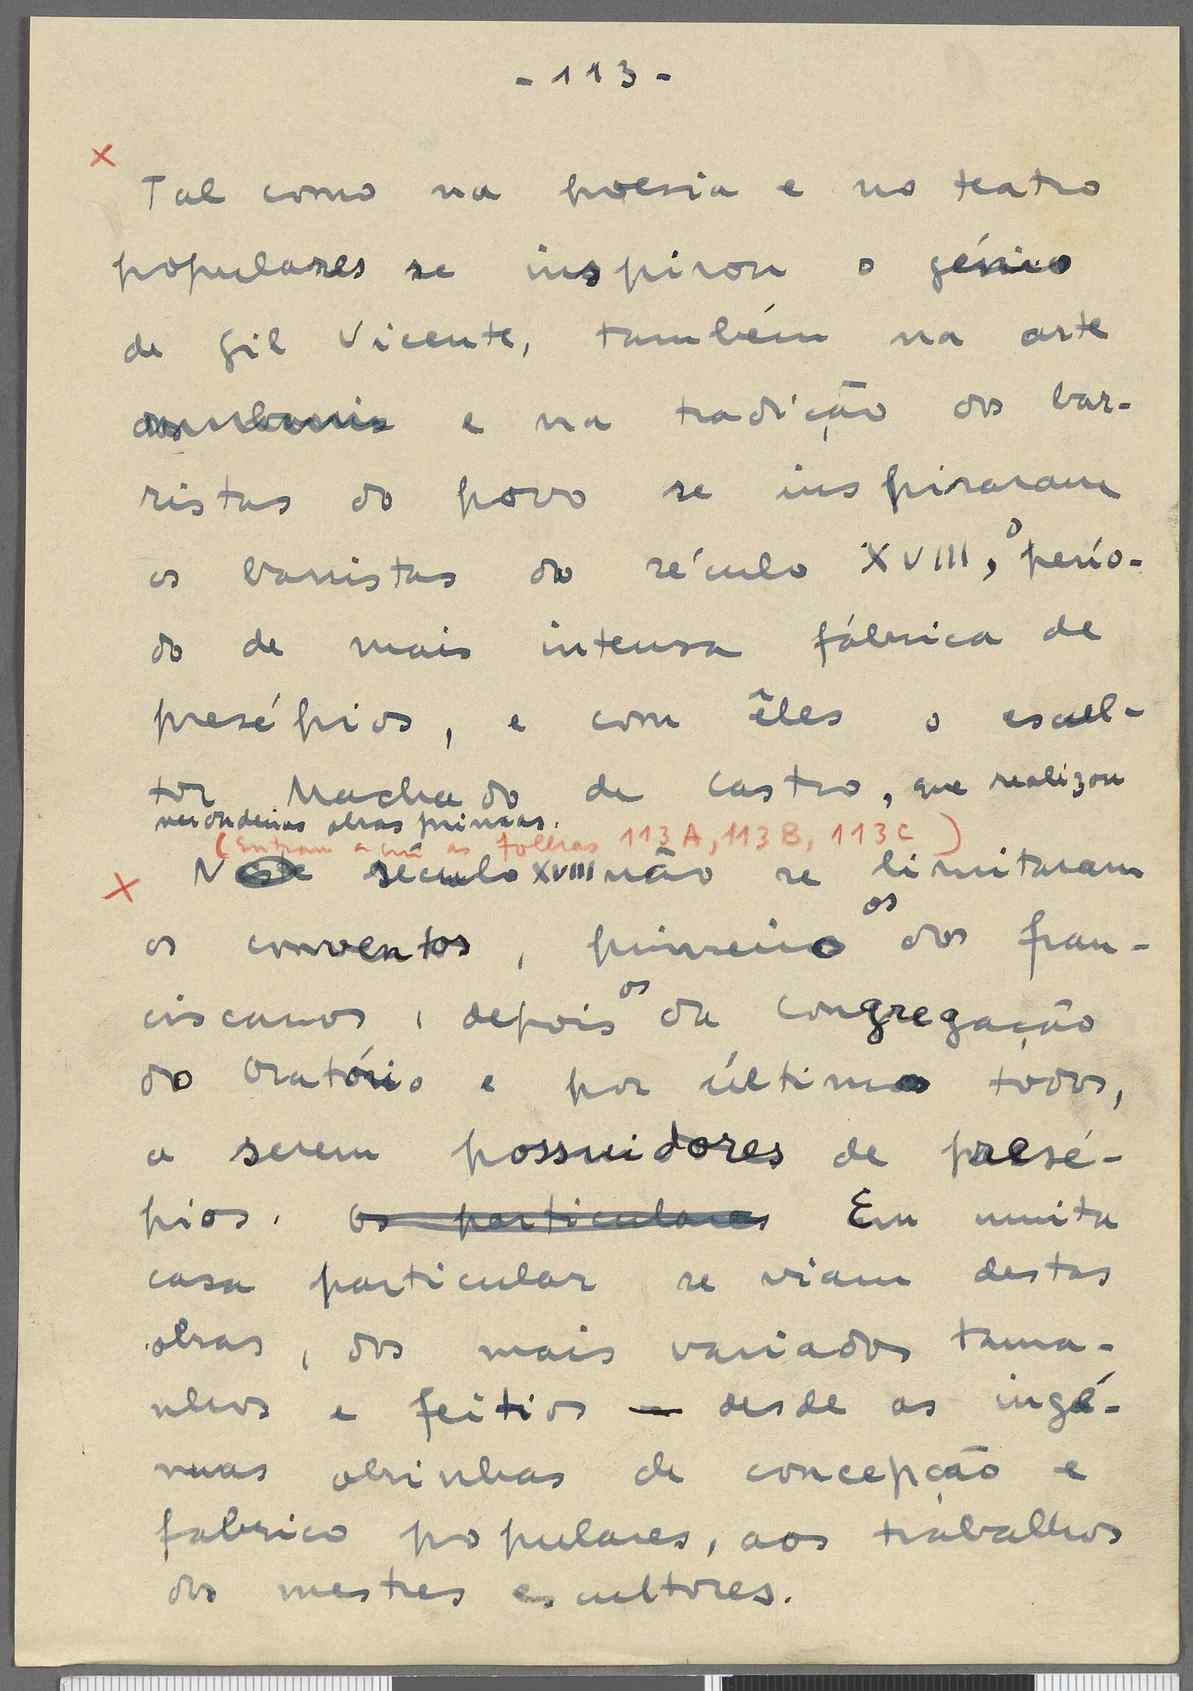 - 113 -
x
Tal como na poesia e no teatro
populares se inspirou o génio
de Gil Vicente, também na arte
e na tradição dos bar-
ristas do povo se inspiraram
os barristas do século XVIII, o perío-
do de mais intensa fábrica de
presépios, e com êles o escul-
tor Machado de Castro, que realizou
verdadeiras obras primas.
(Entram aqui as folhas 113 A, 113 B, 113 C)
x
Neste século XVIII não se limitaram
os conventos, primeiro os dos fran-
ciscanos, depois os da Congregação
do Oratório e por último todos,
a serem possuidores de presé-
pios. Os particulares Em muita
casa particular se viam destas
obras, dos mais variados tama-
nhos e feitios — desde as ingé-
nuas obrinhas de concepção e
fabrico populares, aos trabalhos
dos mestres escultores.